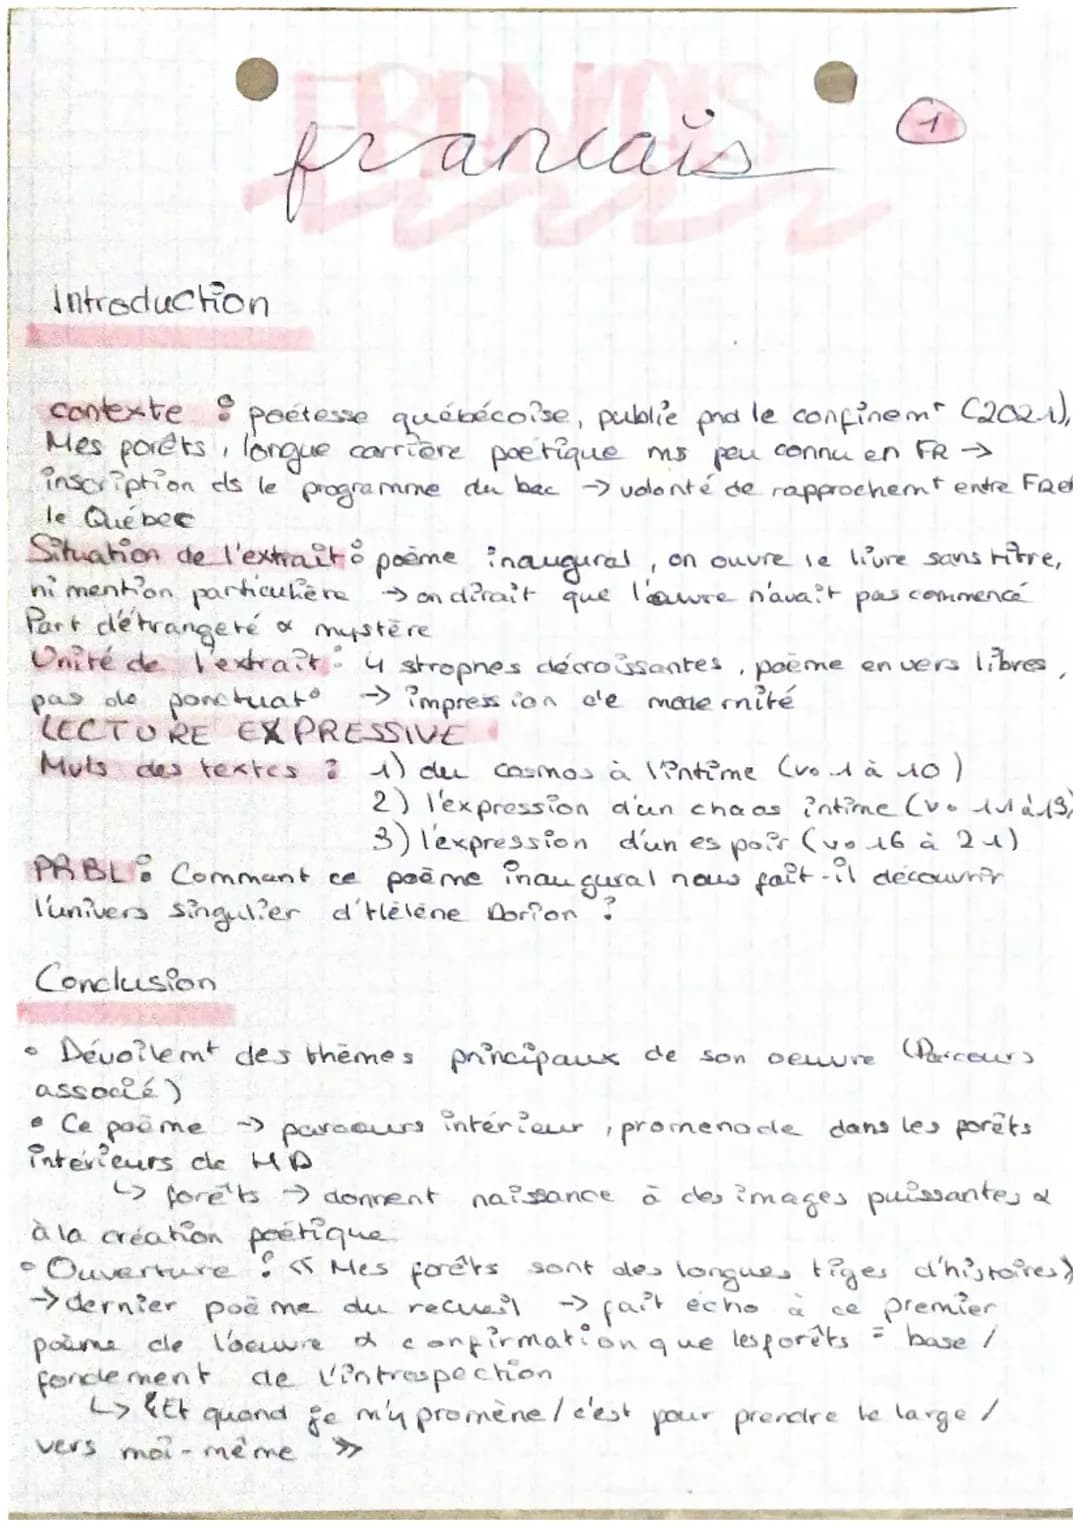 FRANÇAIS
francais
1
Introduction
contexte : poétesse québécoise, publié pnd le confinemt (2021),
Mes forêts, longue carrière poétique ms peu connu en FR →
inscription ds le programme du bac → volonté de rapprochemt entre FR et
le Québec
Situation de l'extrait : poème inaugural, on ouvre le livre sans titre,
ni mention particulière → on dirait que l'œuvre n'avait pas commencé
Part d'étrangeté & mystère
Unité de l'extrait : 4 strophes décroissantes, poème en vers libres,
pas de ponctuat° → impression de modernité
LECTURE EXPRESSIVE
Mvts des textes : 1) du cosmos à l'intime (v. 1 à 10)
2) l'expression d'un chaos intime (v. 11 à 15)
3) l'expression d'un espoir (v. 16 à 21)
PRBL : Comment ce poème inaugural nous fait-il découvrir
l'univers singulier d'Hélène Dorion ?
Conclusion
• Dévoilemt des thèmes principaux de son oeuvre (Parcours
associé)
• Ce poème → parcours intérieur, promenade dans les forêts
intérieurs de HD
↳ forêts → donnent naissance à des images puissantes &
à la création poétique
• Ouverture : « Mes forêts sont des longues tiges d'histoires »
→ dernier poème du recueil → fait écho à ce premier
poème de l'oeuvre & confirmation que les forêts = base /
fondement de l'introspection
↳ « Et quand je m'y promène / c'est pour prendre le large /
vers moi-même »